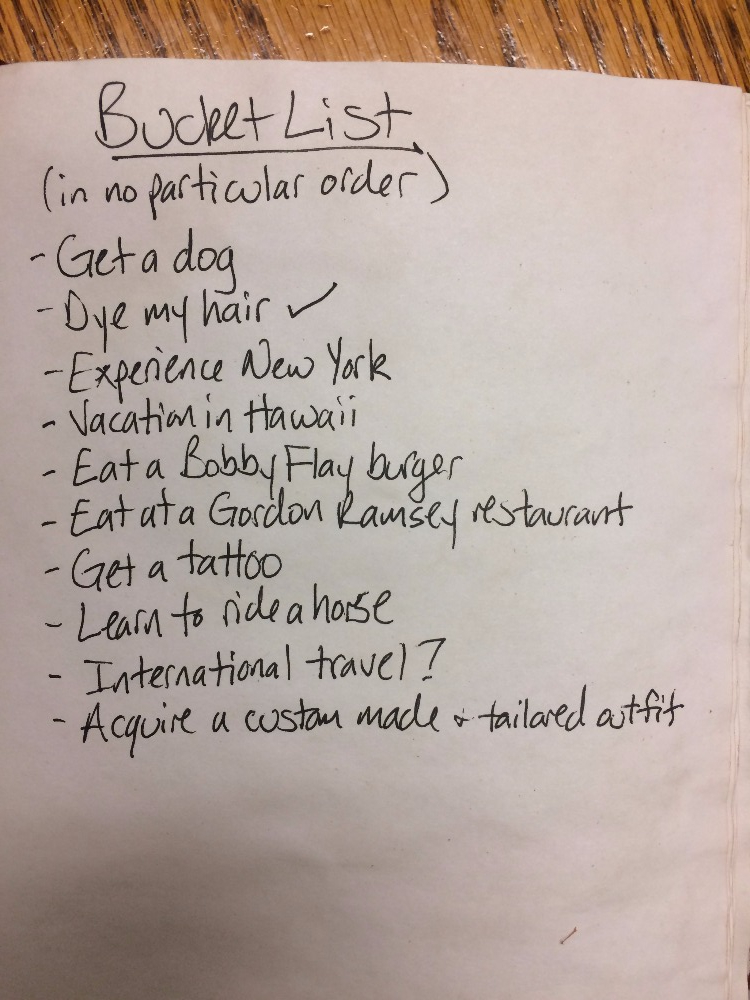 Bucket List
(in no particular order)
- Get a dog
- Dye my hair ✓
- Experience New York
- Vacation in Hawaii
- Eat a Bobby Flay burger
- Eat at a Gordon Ramsey restaurant
- Get a tattoo
- Learn to ride a horse
- International travel?
- Acquire a custom made & tailored outfit